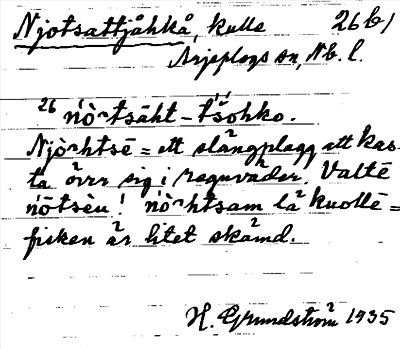 Njotsattjåhkå, kulle 26b)
Arjeplogs sn, Nb. l.
26 ńò̀ᵔtsäht-tšohko.
Njòᵔhtsē = ett slängplagg att kas-
ta över sig i regnväder. Valtē
ńōtsèu! ńòᵔhtsam lä kuollē =
fisken är litet skämd.
H. Grundström 1935